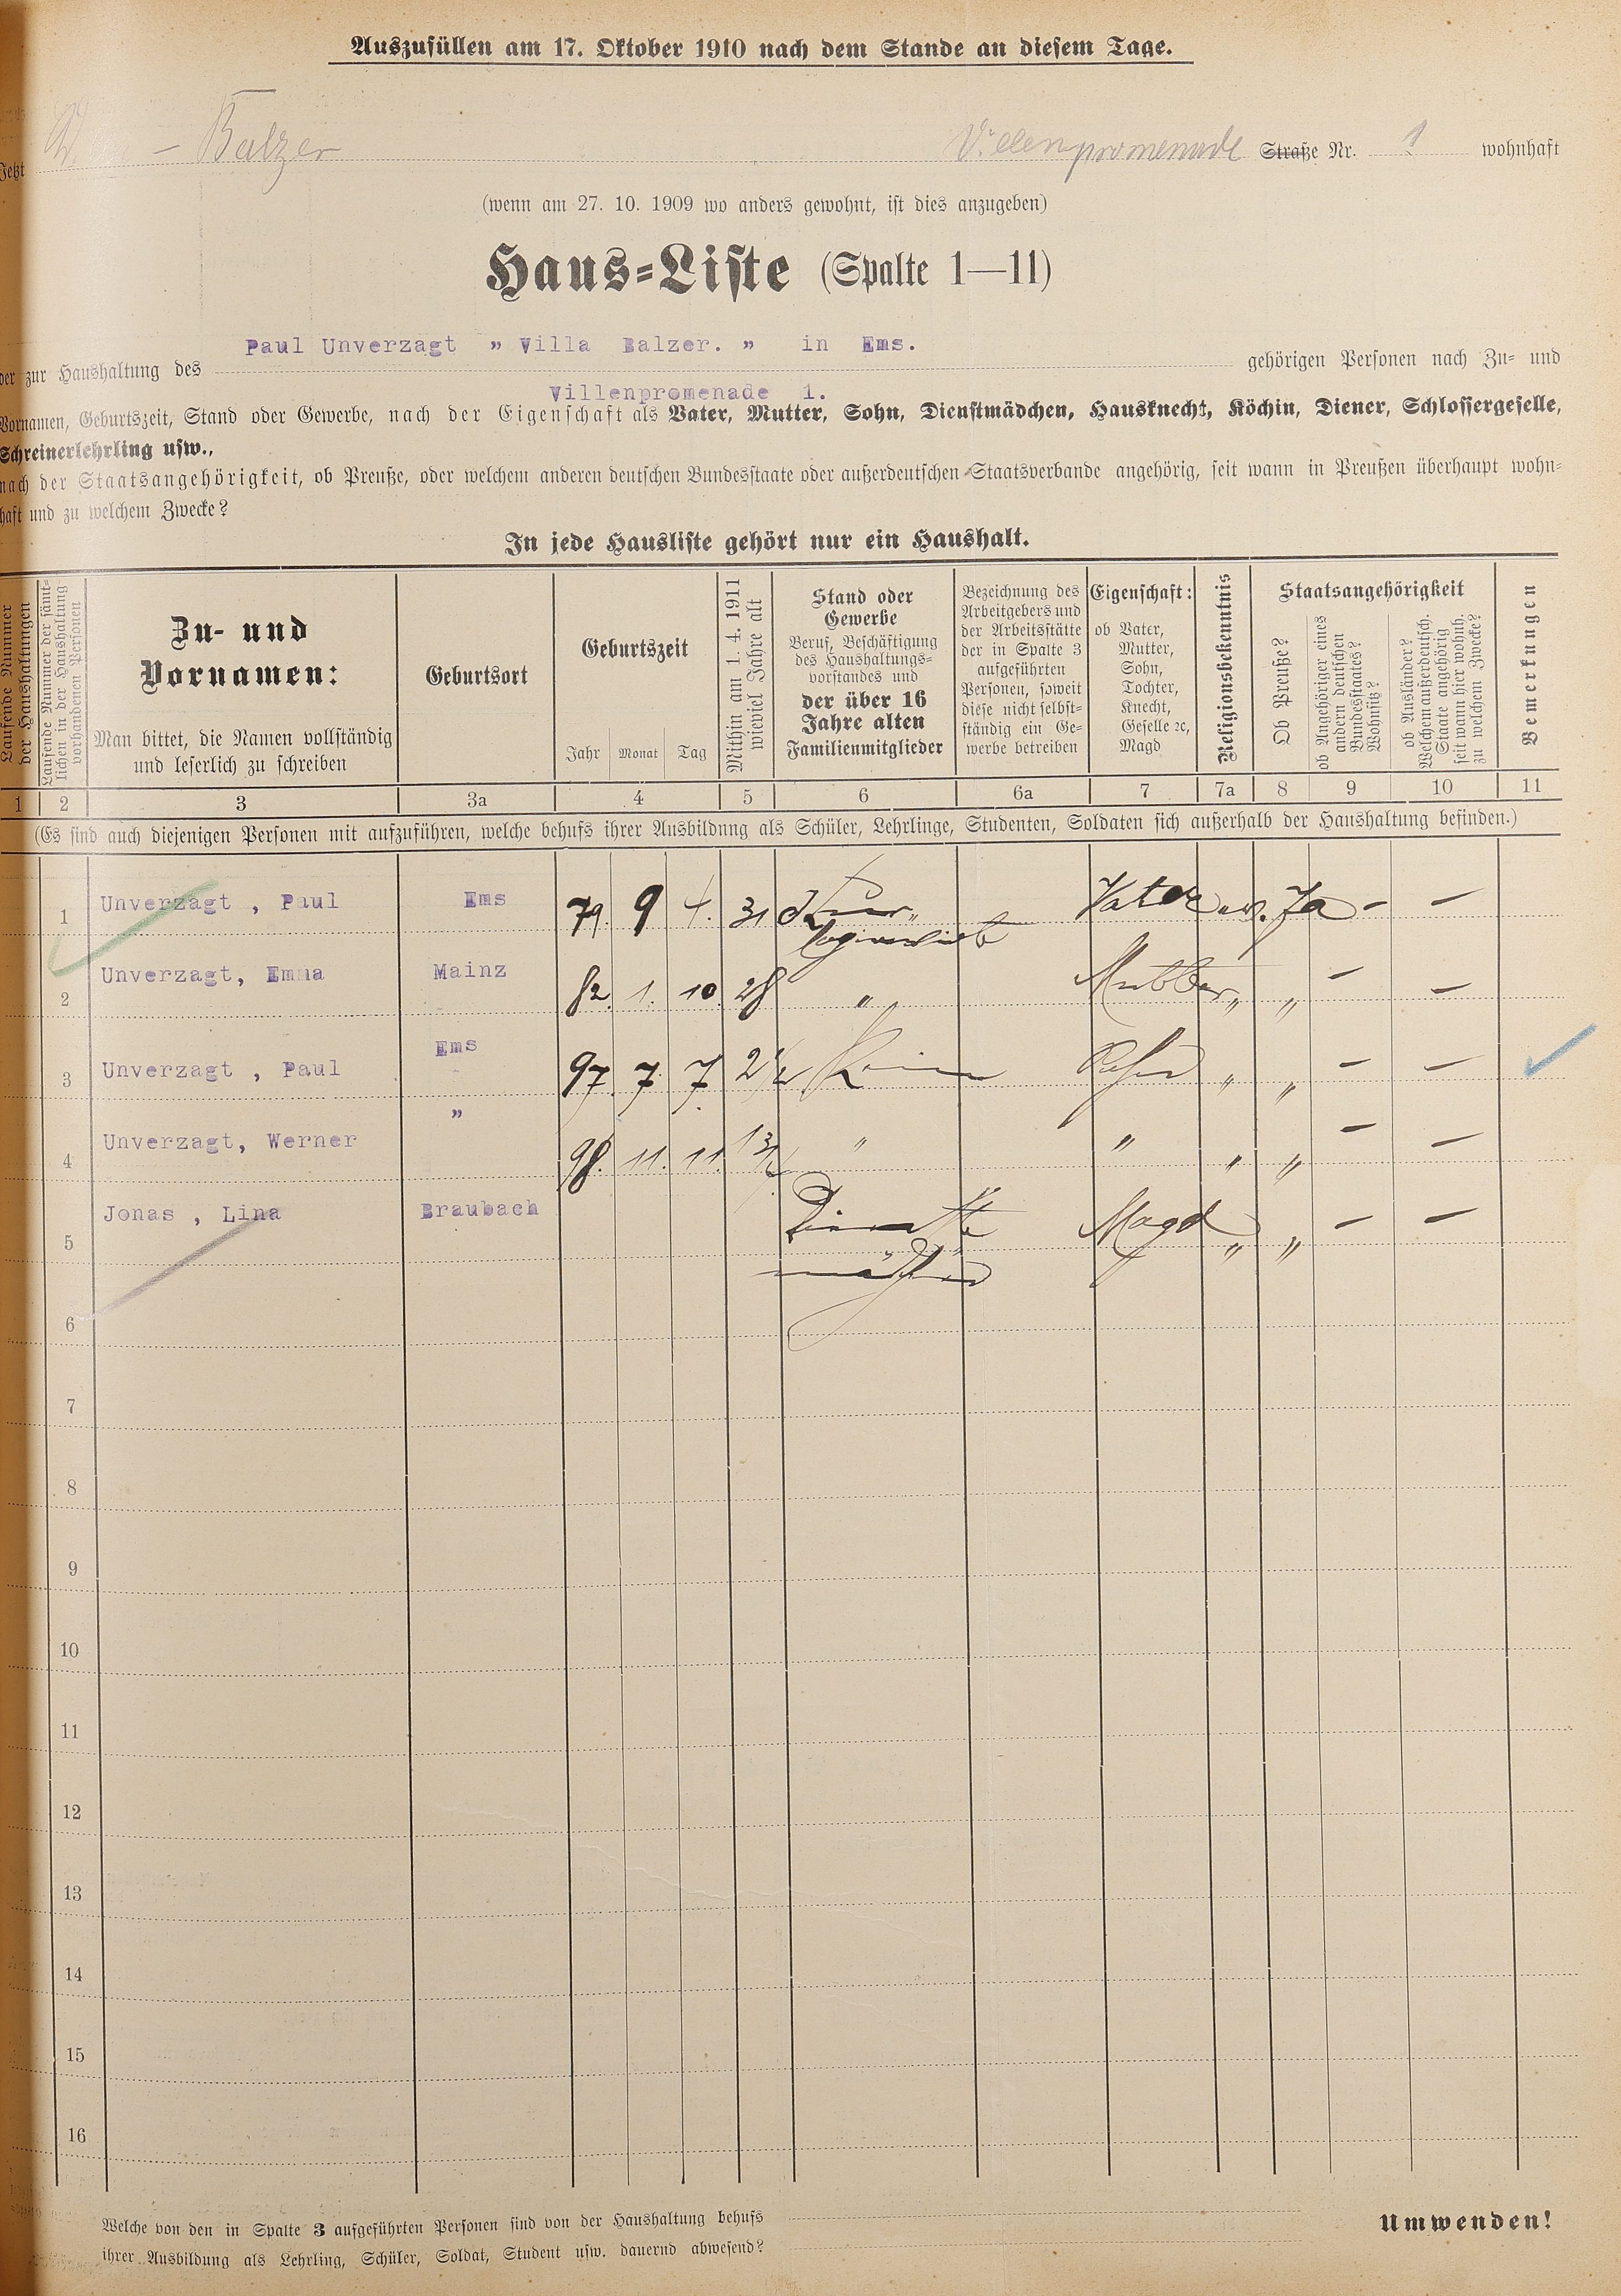 Auszufüllen am 17. Oktober 1910 nach dem Stande an diesem Tage.
Jetzt — Balzer Villenpromenade Straße Nr. 1 wohnhaft
(wenn am 27. 10. 1909 wo anders gewohnt, ist dies anzugeben)
Haus-Liste (Spalte 1—11)
Paul Unverzagt „ Villa Balzer. „ in Ems.
der zur Haushaltung des gehörigen Personen nach Zu- und
Villenpromenade 1.
Vornamen, Geburtszeit, Stand oder Gewerbe, nach der Eigenschaft als Vater, Mutter, Sohn, Dienstmädchen, Hausknecht, Köchin, Diener, Schlossergeselle,
Schreinerlehrling usw.,
nach der Staatsangehörigkeit, ob Preuße, oder welchem anderen deutschen Bundesstaate oder außerdeutschen Staatsverbande angehörig, seit wann in Preußen überhaupt wohn-
haft und zu welchem Zwecke?
In jede Hausliste gehört nur ein Haushalt.
Laufende Nummer
der Haushaltungen
Laufende Nummer der sämt-
lichen in der Haushaltung
vorhandenen Personen
Zu- und
Vornamen:
Man bittet, die Namen vollständig
und leserlich zu schreiben
Geburtsort
Geburtszeit
Jahr Monat Tag
Mithin am 1. 4. 1911
wieviel Jahre alt
Stand oder
Gewerbe
Beruf, Beschäftigung
des Haushaltungs-
vorstandes und
der über 16
Jahre alten
Familienmitglieder
Bezeichnung des
Arbeitgebers und
der Arbeitsstätte
der in Spalte 3
aufgeführten
Personen, soweit
diese nicht selbst-
ständig ein Ge-
werbe betreiben
Eigenschaft:
ob Vater,
Mutter,
Sohn,
Tochter,
Knecht,
Geselle ꝛc,
Magd
Religionsbekenntnis
Staatsangehörigkeit
Ob Preuße?
ob Angehöriger eines
andern deutschen
Bundesstaates?
Wohnsitz?
ob Ausländer?
Welchem außerdeutsch.
Staate angehörig
seit wann hier wohnh.
zu welchem Zwecke?
Bemerkungen
1 2 3 3a 4 5 6 6a 7 7a 8 9 10 11
(Es sind auch diejenigen Personen mit aufzuführen, welche behufs ihrer Ausbildung als Schüler, Lehrlinge, Studenten, Soldaten sich außerhalb der Haushaltung befinden.)
1 Unverzagt , Paul Ems 79. 9 4. 31 Vater ev. Ja — —
2 Unverzagt, Emma Mainz 82. 1. 10. 28 „ Mutter „ „ — —
3 Unverzagt , Paul Ems 97 7. 7 Sohn „ „ — —
4 Unverzagt, Werner „ 98. 11. 11. „ „ „ „ — —
5 Jonas , Lina Braubach Dienst Magd „ „ — —
mädchen
6
7
8
9
10
11
12
13
14
15
16
Welche von den in Spalte 3 aufgeführten Personen sind von der Haushaltung behufs
ihrer Ausbildung als Lehrling, Schüler, Soldat, Student usw. dauernd abwesend?
Umwenden!